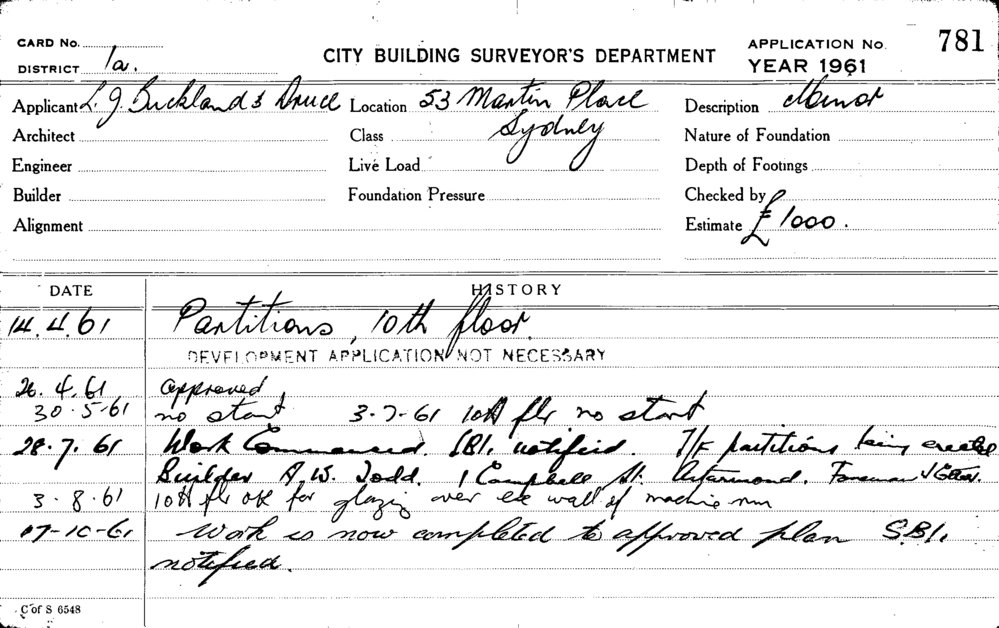 CARD No.
DISTRICT 1a.
CITY BUILDING SURVEYOR'S DEPARTMENT
APPLICATION No. 781
YEAR 1961
Applicant L. J. Buckland & Druce Location 53 Martin Place Description Minor
Architect Class Sydney Nature of Foundation
Engineer Live Load Depth of Footings
Builder Foundation Pressure Checked by
Alignment Estimate £1000.
DATE HISTORY
14.4.61 Partitions, 10th floor
DEVELOPMENT APPLICATION NOT NECESSARY
26.4.61 approved
30.5.61 no start 3-7-61 10th flr no start
28.7.61 Work Commenced. SBI. notified. T/F partitions being erected
Builder A. W. Todd. 1 Campbell St. Artarmond. Foreman
3.8.61 10th flr OK for glazing over wall of machine rm
17-10-61 Work is now completed to approved plan SBI.
notified.
C of S 6548